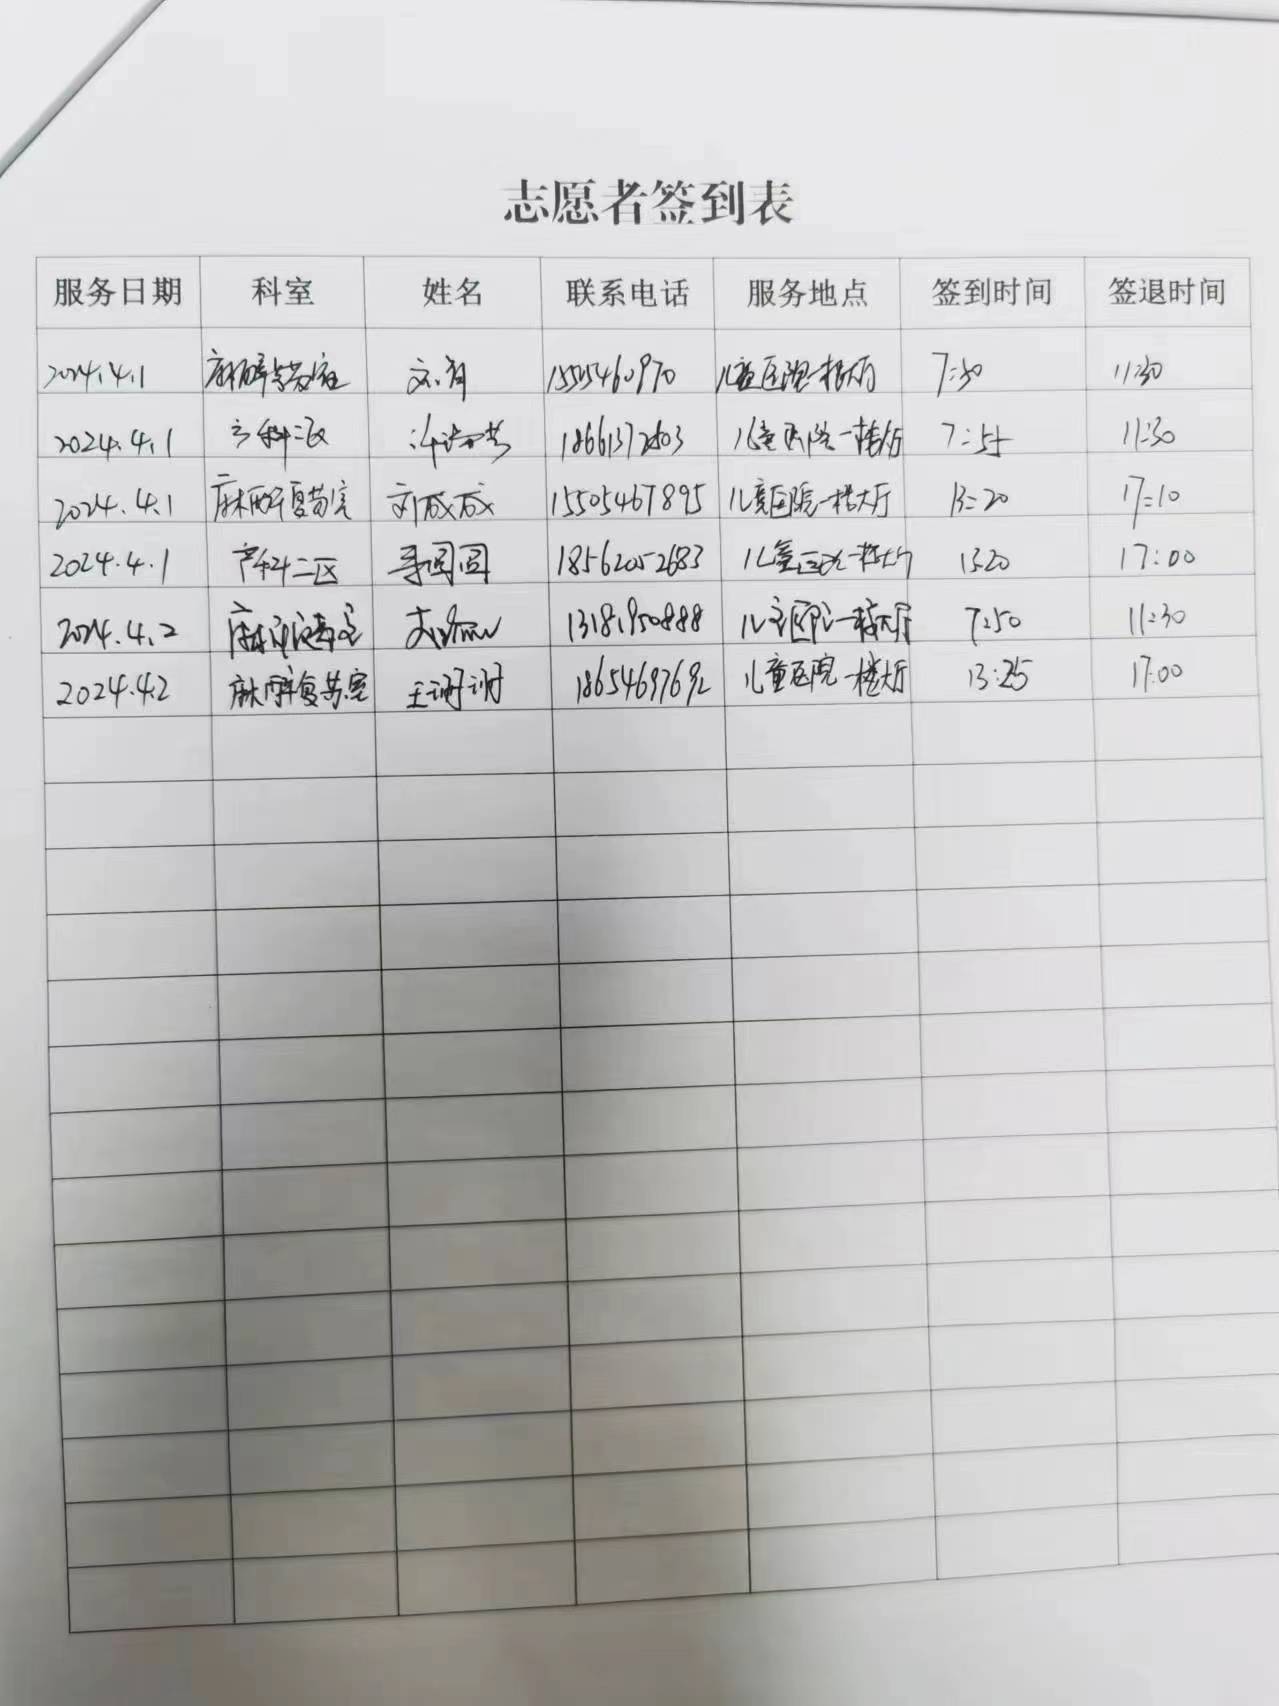 志愿者签到表
服务日期 科室 姓名 联系电话 服务地点 签到时间 签退时间
2024.4.1 麻醉复苏室 儿童医院一楼大厅 7:30 11:30
2024.4.1 科二区 儿童医院一楼大厅 7:55 11:30
2024.4.1 麻醉复苏室 刘成成 15505467895 儿童医院一楼大厅 13:20 17:10
2024.4.1 产科二区 圆圆 18562052683 儿童医院一楼大厅 1320 17:00
2024.4.2 麻醉复苏室 儿童医院一楼大厅 7:50 11:30
2024.4.2 麻醉复苏室 王谢谢 18654697692 儿童医院一楼大厅 13:25 17:00